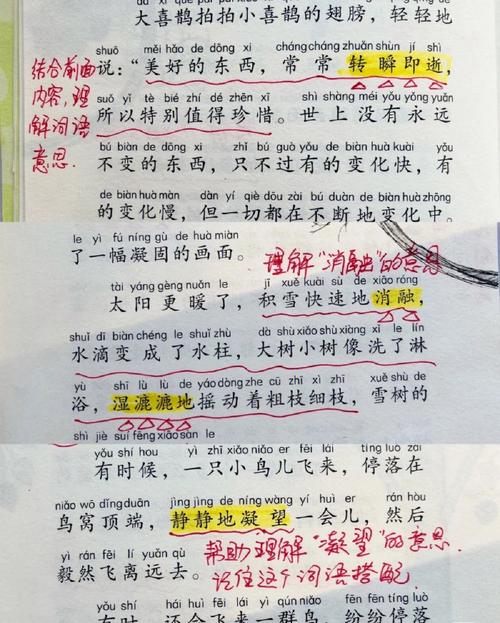 大喜鹊拍拍小喜鹊的翅膀，轻轻地
shuō měi hǎo de dōng xi cháng cháng zhuǎn shùn jí shì
说："美好的东西，常常转瞬即逝，
结合前面
内容，理
解词语
意思.
suǒ yǐ tè bié zhí dé zhēn xī shì shàng méi yǒu yǒng yuǎn
所以特别值得珍惜。世上没有永远
bú biàn de dōng xi zhǐ bú guò yǒu de biàn huà kuài yǒu
不变的东西，只不过有的变化快，有
de biàn huà màn dàn yí qiè dōu zài bú duàn de biàn huà zhōng
的变化慢，但一切都在不断地变化中。
le yì fú níng gù de huà miàn
了一幅凝固的画面。
理解"消融"的意思
tài yáng gèng nuǎn le jī xuě kuài sù de xiāo róng
太阳更暖了，积雪快速地消融，
shuǐ dī biàn chéng le shuǐ zhù dà shù xiǎo shù xiàng xǐ le lín
水滴变成了水柱，大树小树像洗了淋
yù shī lù lù de yáo dòng zhe cū zhī xì zhī xuě shù de
浴，湿漉漉地摇动着粗枝细枝，雪树的
shì jiè suí fēng xiāo sàn le
yǒu shí hou yì zhī xiǎo niǎo er fēi lái tíng luò zài
有时候，一只小鸟儿飞来，停落在
niǎo wō dǐng duān jìng jìng de níng wàng yí huì er rán hòu
鸟窝顶端，静静地凝望一会儿，然后
yì rán fēi lí yuǎn qù
毅然飞离远去。
帮助理解"凝望"的意思.
记住这个词语搭配.
yǒu shí hái huì fēi lái yì qún niǎo er fēn fēn tíng luò
有时还会飞来一群鸟儿，纷纷停落